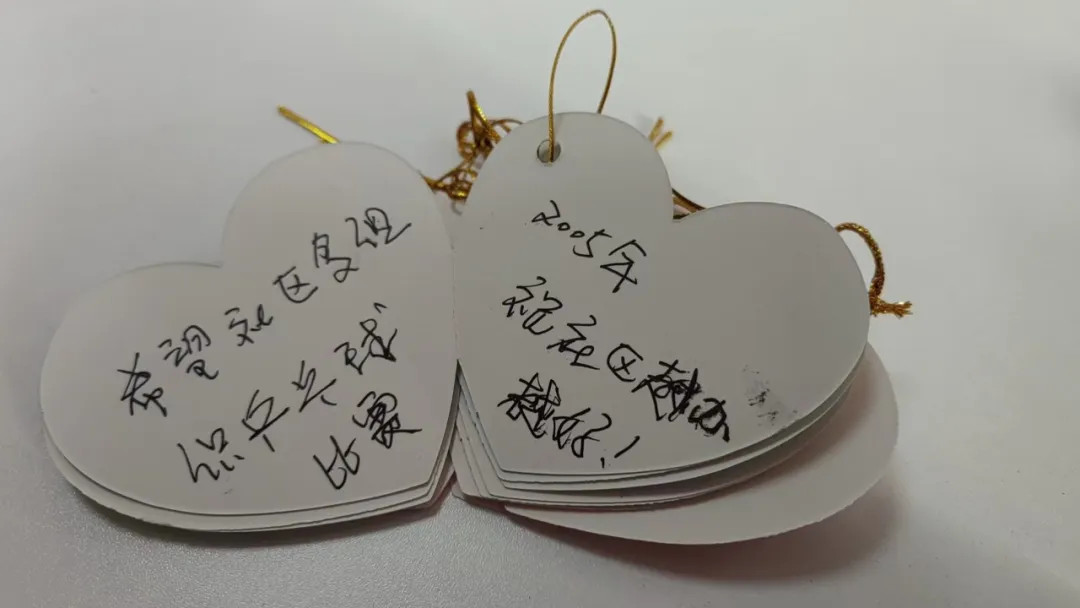 希望社区多组
织乒乓球
比赛
2005年
祝社区越办
越好！